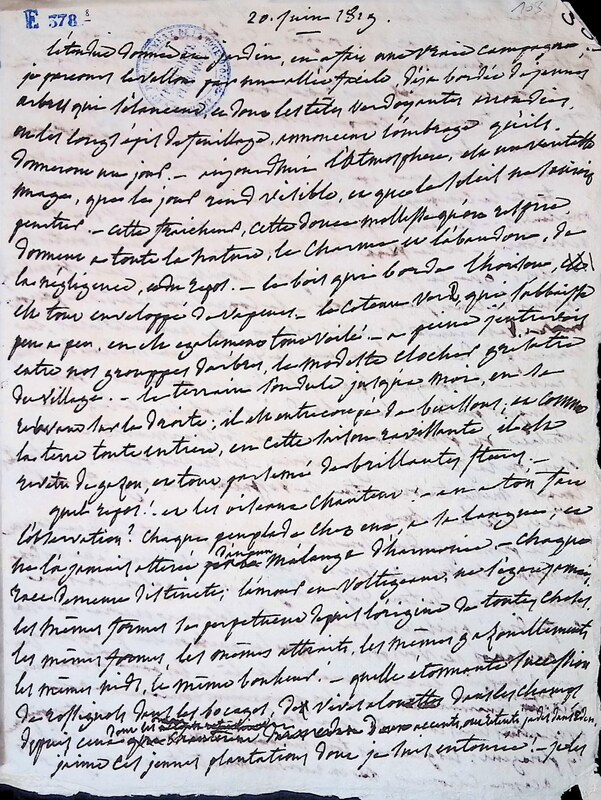 E 378 8
20. juin 1829.
103
l'étendue donnée au jardin, en a fait une vraie campagne,
je parcours le vallon par une allée fraîche déjà bordée de jeunes
arbres qui s'élancent, et dont les têtes verdoyantes arrondies,
ou les longs épis de feuillage, annoncent l'ombrage qu'ils
donneront un jour — aujourd'hui l'atmosphère, est un véritable
nuage, que le jour rend visible, et que le soleil ne saurait
pénétrer. — cette fraîcheur, cette douce mollesse qu'on respire
donnent à toute la nature, le charme et l'abandon, de
la négligence, et du repos. — le bois qui borde l'horison,
est tout enveloppé de vapeurs — le coteau vert, que s'abbaisse
peu à peu, en est également tout voilé — à peine j'entrevois
entre nos grouppes d'arbres, le modeste clocher grisatre
du village. — le terrain s'ondule jusqu'à moi, en se
relevant sur la droite; il est entrecoupé de buissons, et comme
la terre toute entière, en cette saison ravissante elle est
revetu de gazon, et tout parsemé de brillantes fleurs. —
quel repos! et les oiseaux chantent! — en a-t-on fait
l'observation? chaque peuplade chez eux, a sa langue; et
ne l'a jamais altérée d'aucun mélange d'harmonie — chaque
race demeure distincte; l'amour en voltigeant, ne s'égare jamais,
les mêmes formes se perpétuent depuis l'origine de toutes choses
les mêmes formes, les mêmes attraits, les mêmes gazouillements
les mêmes nids, le même bonheur! — quelle étonnante succession
de rossignols dans les bocages, de vives alouettes dans les champs
depuis ceux dont les accents, ont retenti jadis dans l'Eden
j'aime ces jeunes plantations dont je suis entourée. — je les